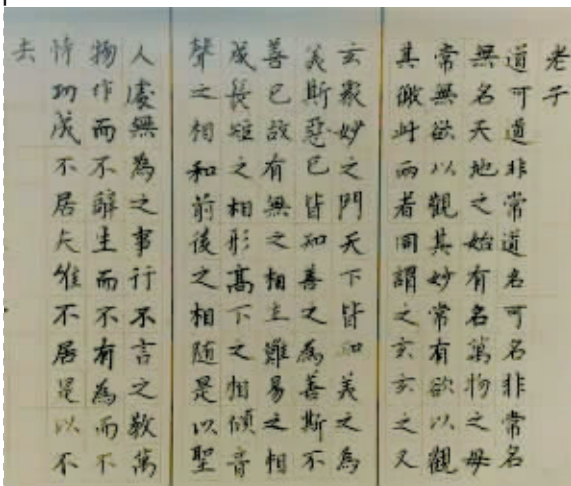 老子
道可道非常道名可名非常名
無名天地之始有名萬物之母
常無欲以觀其妙常有欲以觀
其徼此兩者同謂之玄玄之又
玄衆妙之門天下皆知美之為
美斯惡已皆知善之為善斯不
善已故有無之相生難易之相
成長短之相形高下之相傾音
聲之相和前後之相随是以聖
人處無為之事行不言之教萬
物作而不辭生而不有為而不
恃功成不居夫惟不居是以不
去